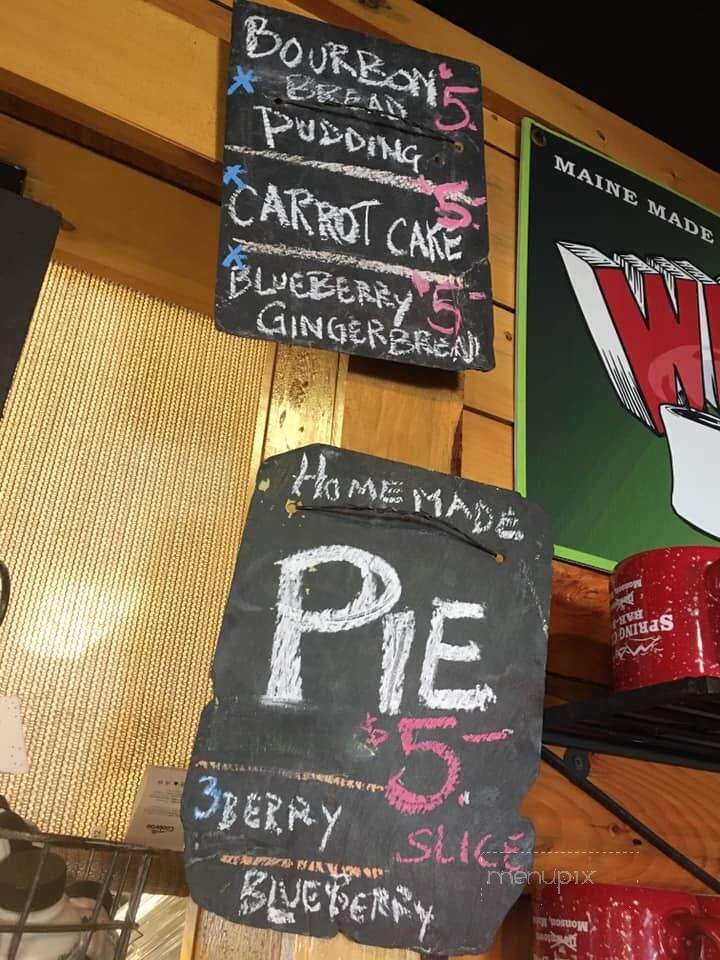 BOURBON $5.
* BREAD
PUDDING
* CARROT CAKE $5.
* BLUEBERRY $5-
GINGERBREAD
MAINE MADE
HOMEMADE
PIE
$5.-
SLICE
3 BERRY
BLUEBERRY
SPRING
BAR-
Monson,
Monson, Maine
menupix